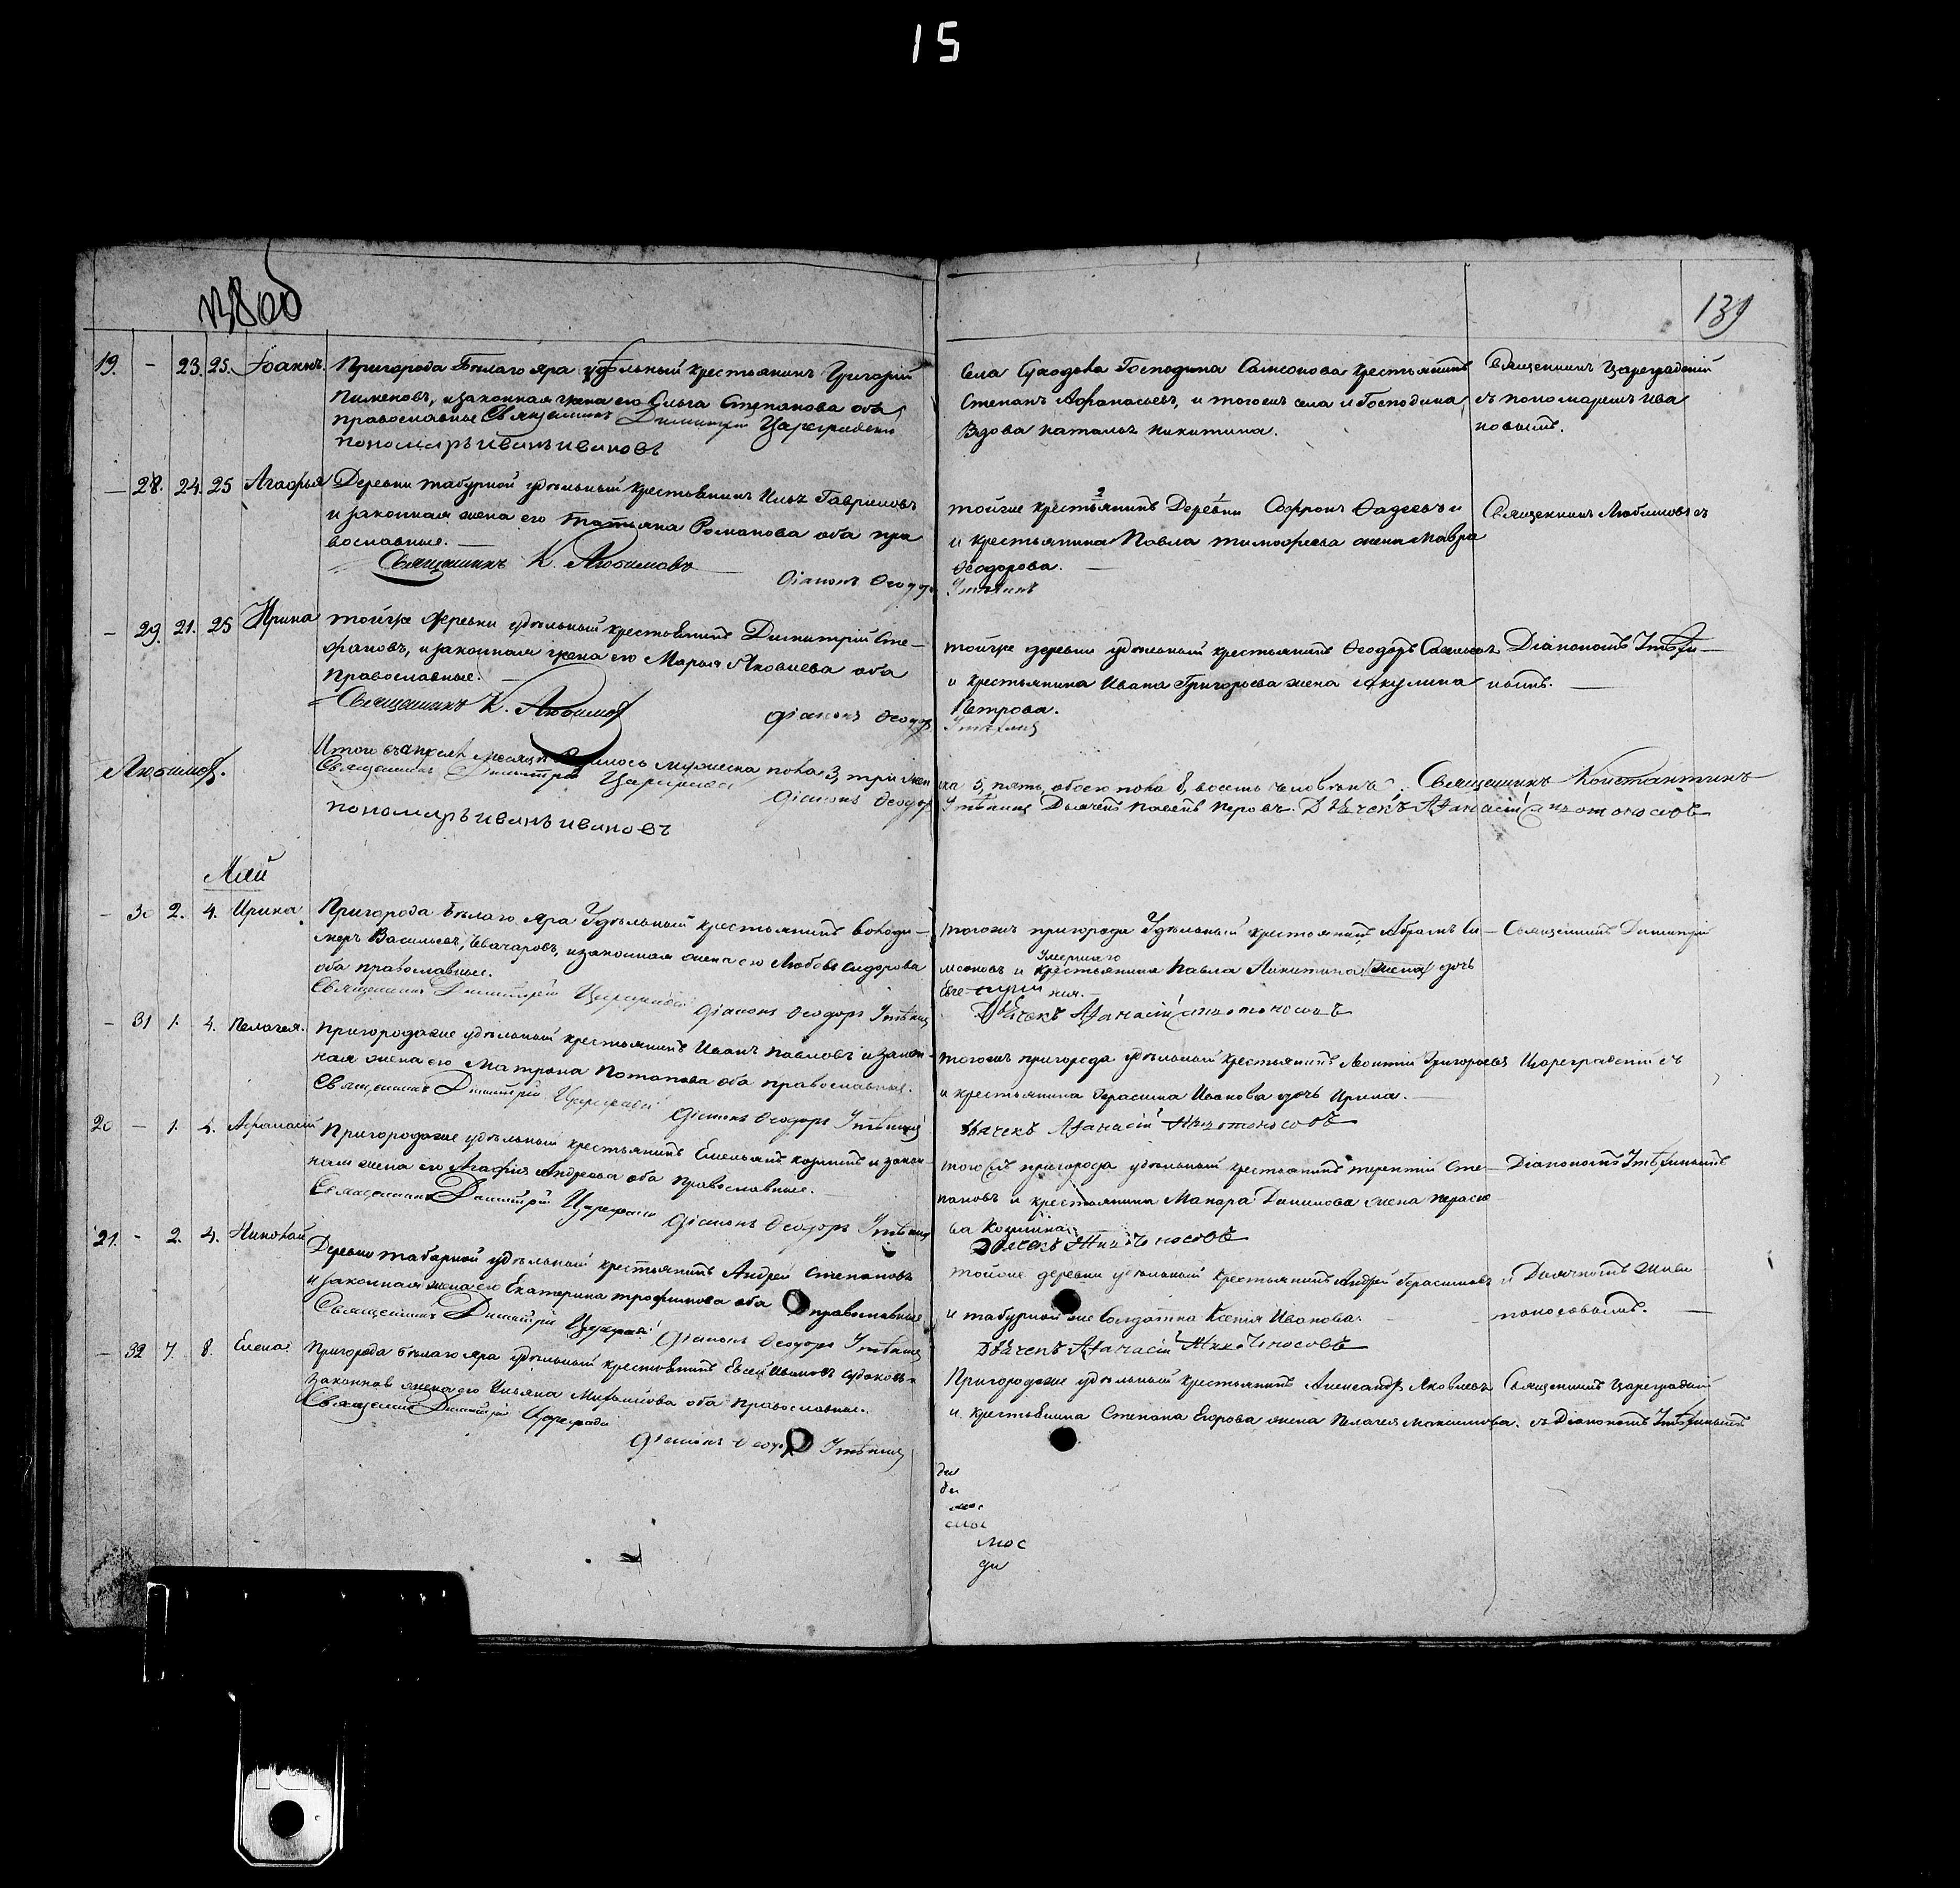 15
138об
139
19. - 23. 25. Іоаннъ. Пригорода Бѣлаго Яра удѣльный крестьянинъ Григорій
Пименовъ, и законная жена его Ольга Степанова оба
православные Священникъ Димитрій Цареградскій
пономарь иванъ ивановъ
Села Суходола Господина Самсонова крестьянинъ
Степанъ Афанасьевъ, и тогожъ села и Господина
Наталья Никитина.
Священникъ Цареградскій
съ пономаремъ Ива
новымъ.
— 28. 24. 25 Агафья Деревни табурной удѣльный крестьянинъ Илья Гавриловъ
и законная жена его Татьяна Романова оба пра
вославные. —
Священникъ К. Любимовъ
діаконъ Ѳеодоръ
тойже крестьянинъ 2 Деревни 1 Софронъ Ѳадеевъ и
и крестьянина Павла Тимофеева жена Мавра
Ѳеодорова. —
Священникъ Любимовъ съ
— 29. 21. 25 Ирина тойже деревни удѣльный крестьянинъ Димитрій Сте-
фановъ, и законная жена его Марья Яковлева оба
православные. —
Священникъ К. Любимов
діаконъ Ѳеодор
тойже деревни удѣльный крестьянинъ Ѳеодоръ
и крестьянина Ивана Григорьева жена Акулина
Петрова.
Діакономъ
нымъ. —
Итого въ апрѣлѣ месяце родилось мужеска пола 3, три жен
ска 5, пять, обоего пола 8, восемь человѣкъ. Священникъ Константинъ
Любимов.
Священникъ Димитрій Цареградскій
діаконъ Ѳеодор
Дьячекъ Павелъ Перовъ. Дьячекъ Афанасій
пономарь иванъ ивановъ
Май
— 30 2. 4. Ирина Пригорода Бѣлаго Яра Удѣльный крестьянинъ Володи-
меръ Васильевъ, Овчаровъ, и законная жена его Любовь Сидорова
оба православные.
Священникъ Димитрій Цареградскій діаконъ Ѳеодоръ
тогожъ пригорода Удѣльный крестьянинъ Абрамъ Си-
меоновъ и умершаго крестьянина Павла Никитина жена дочь
Евге ния. —
Дьячекъ Афанасій
Священникъ Димитрій
— 31 1. 4. Пелагея. Пригородаже удѣльный крестьянинъ Иванъ Павловъ и закон-
ная жена его Матрона Потапова оба православные.
Священникъ Димитрій Цареградскій діаконъ Ѳеодоръ
тогожъ пригорода удѣльный крестьянинъ Леонтій Григорьевъ
и крестьянина Герасима Иванова дочь Ирина. —
Дьячекъ Афанасій
Цареградскій съ
20 — 1. 4. Афанасій Пригородаже удѣльный крестьянинъ Емельянъ Козминъ и закон-
ная жена его Агафія Андреева оба православные. —
Священникъ Димитрій Цареградскій діаконъ Ѳеодоръ
тогожъ пригорода удѣльный крестьянинъ Терентій Сте-
пановъ и крестьянина Макара Данилова жена Параско
ва Козмина
Дьячекъ
Діакономъ
21. - 2. 4. Николай Деревни табарной удѣльный крестьянинъ Андрей Степановъ
и законная жена его Екатерина Трофимова оба православные
Священникъ Димитрій Цареградскій діаконъ Ѳеодоръ
тойже деревни удѣльный крестьянинъ Андрей Герасимовъ
и табурной же солдатка Ксенія Иванова.
Дьячекъ Афанасій
и Дьячкомъ Живо
тоносовымъ. —
— 32 7. 8. Елена. Пригорода Бѣлаго Яра удѣльный крестьянинъ Евсей Ивановъ
законная жена его Ульяна Митрофанова оба православные.
Священникъ Димитрій Цареградскій
діаконъ Ѳеодоръ
Пригородаже удѣльный крестьянинъ Александръ Яковлевъ
и крестьянина Степана Егорова жена Пелагея Максимова.
Священникъ Цареградскій
съ Діакономъ